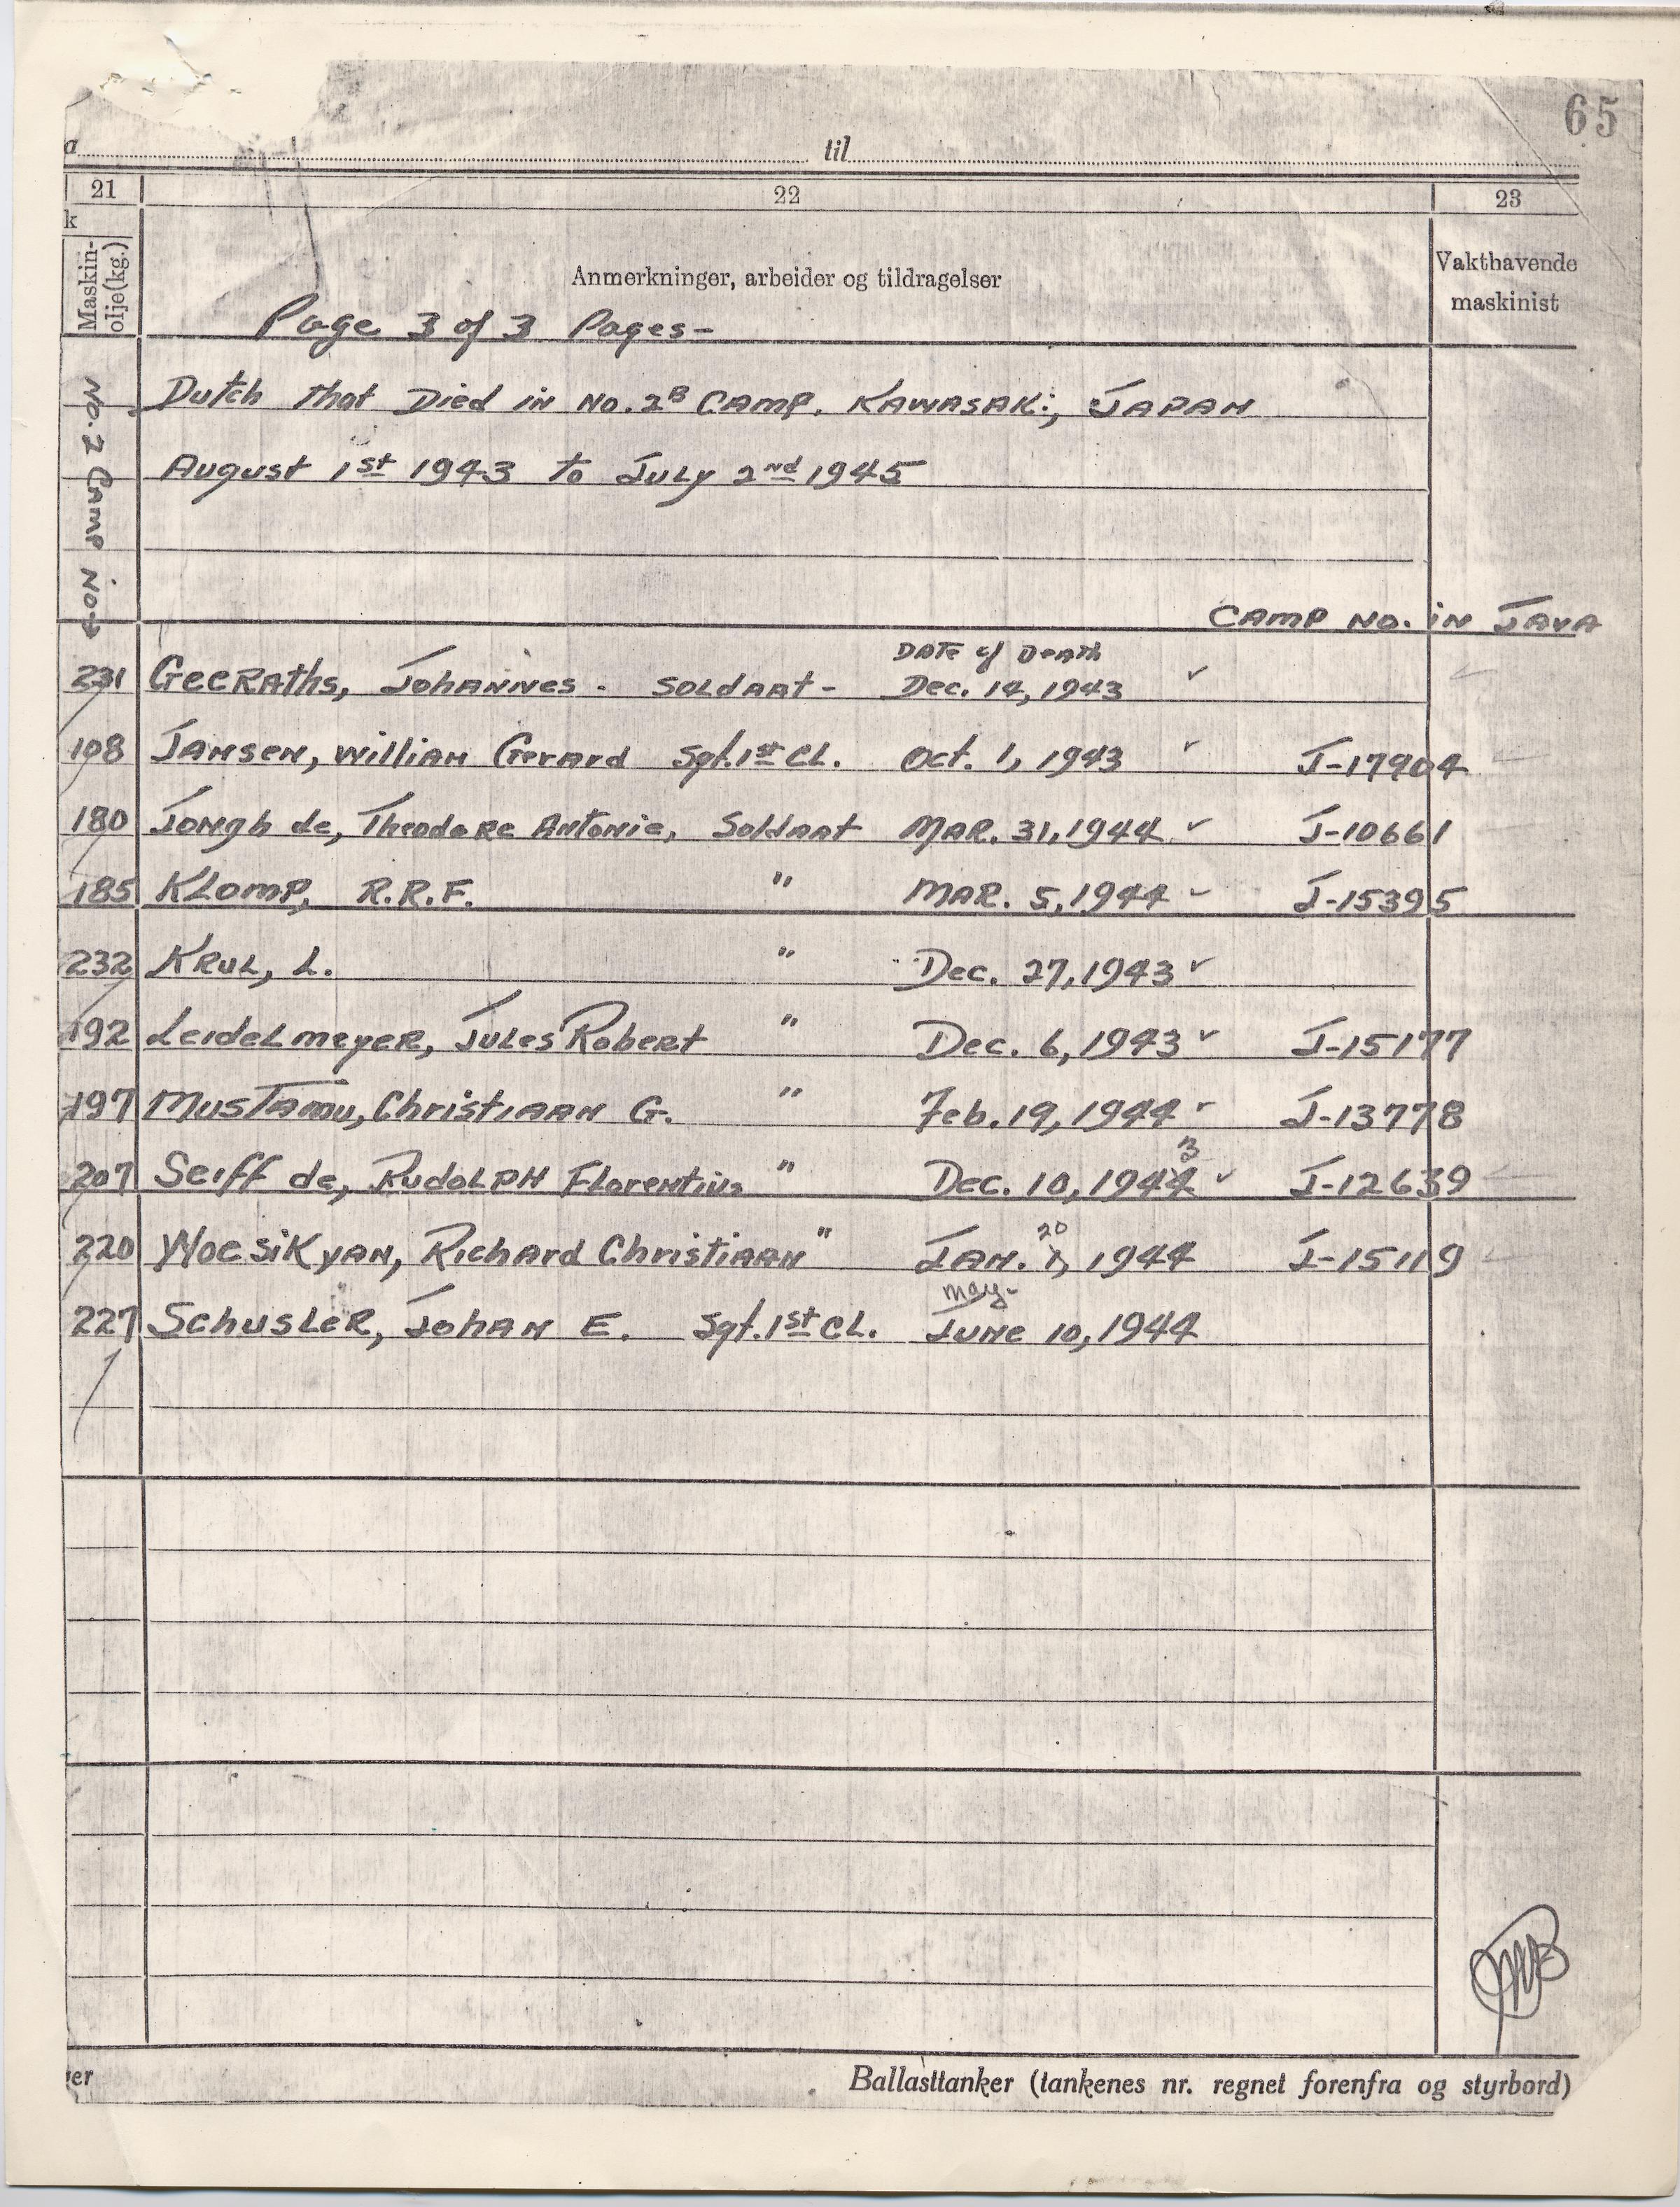 65
a til
21 22 23
k
Maskin-
olje(kg.)
Anmerkninger, arbeider og tildragelser
Vakthavende
maskinist
Page 3 of 3 Pages-
Dutch that Died in No. 2B Camp, Kawasaki, Japan
August 1st 1943 to July 2nd 1945
No. 2 Camp No→
Camp No. in Java
Date of Death
231 Geeraths, Johannes - Soldaat - Dec. 14, 1943 ✓
108 Jansen, William Gerard Sgt. 1st Cl. Oct. 1, 1943 ✓ J-17904
180 Jongh de, Theodore Antonie, Soldaat Mar. 31, 1944 ✓ J-10661
185 Klomp, R.R.F. " Mar. 5, 1944 ✓ J-15395
232 Krul, L. " Dec. 27, 1943 ✓
192 Leidelmeyer, Jules Robert " Dec. 6, 1943 ✓ J-15177
197 Mustamu, Christiaan G. " Feb. 19, 1944 ✓ J-13778
3
207 Seiff de, Rudolph Florentius " Dec. 10, 1944 ✓ J-12639
20
220 Woesik van, Richard Christiaan " Jan. 1, 1944 J-15119
may-
227 Schusler, Johan E. Sgt. 1st Cl. June 10, 1944
er
Ballasttanker (tankenes nr. regnet forenfra og styrbord)